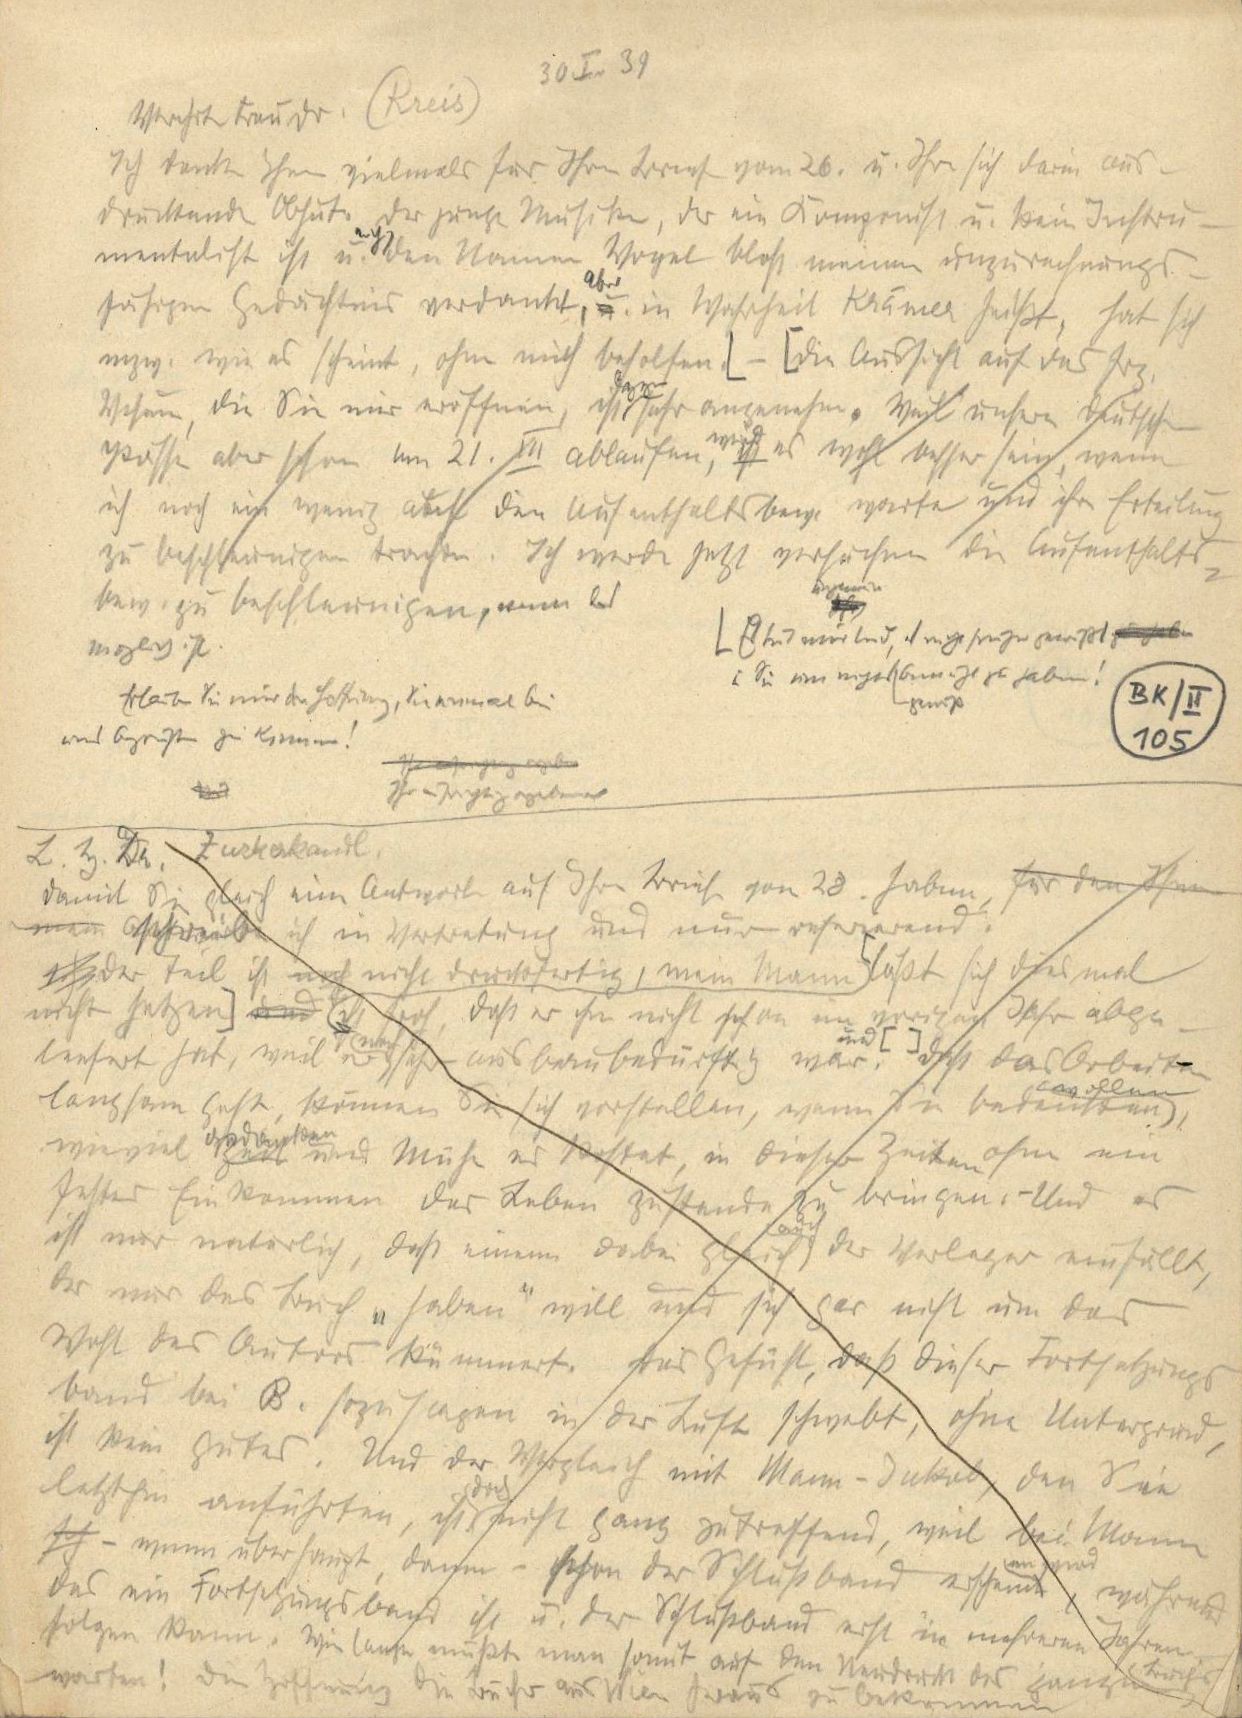 30 I. 39
Verehrte Frau Dr. (Kreis)
Ich danke Ihnen vielmals für Ihren Brief vom 26. u. Ihre sich darin aus-
drückende Obhut. Der junge Musiker, der ein Komponist u. kein Instru-
mentalist ist u. auch den Namen Vogel bloß meinem unzurechnungs-
fähigen Gedächtnis verdankt, aber in Wahrheit Krämer heißt, hat sich
inzw. wie es scheint, ohne mich beholfen. [ – [Die Aussicht auf das Frz.
Visum, die Sie mir eröffnen, ist sehr angenehm. Weil unsere deutschen
Pässe aber schon am 21. III ablaufen, wird es wohl besser sein, wenn
ich noch ein wenig auf den Aufenthaltsbew. warte und ihre Erteilung
zu beschleunigen trachte. Ich werde jetzt versuchen die Aufenthalts-
bew. zu beschleunigen, wenn das
möglich ist.
[Es tut mir leid,
Sie um bemüht zu haben!
Erlauben Sie mir die Hoffnung, Sie einmal bei
uns begrüßen zu können!
BK/II
105
Ihr ergebener
L. Hr. Dr. Zuckerkandl.
damit Sie gleich eine Antwort auf Ihren Brief von 28. haben, für den Ihnen
mein schreibe ich in Vertretung und nur referierend.
der Teil ist noch nicht druckfertig, mein Mann läßt sich diesmal
nicht hetzen] und ist froh, daß er ihn nicht schon im vorigen Jahr abge-
liefert hat, weil er noch sehr ausbaubedürftig war. und [ ] Daß das Arbeiten
langsam geht, können Sie sich vorstellen, wenn Sie bedenken wollen,
wieviel Gedanken und Mühe es kostet, in diesen Zeiten ohne ein
festes Einkommen das Leben zustande zu bringen. – Und es
ist nur natürlich, daß einem dabei gleich auch der Verleger einfällt,
der nur das Buch „haben“ will und sich gar nicht um das
Wohl des Autors kümmert. Das Gefühl, daß dieser Fortsetzungs
band bei B. sozusagen in der Luft schwebt, ohne Untergrund,
ist kein gutes. Und der Vergleich mit Mann-Jakob, den Sie
letzthin anführten, ist doch nicht ganz zutreffend, weil bei Mann
– wenn überhaupt, dann – schon der Schlußband erscheinen wird, während
das ein Fortsetzungsband ist u. der Schlußband erst in mehreren Jahren
folgen kann. Wie lange müßte man somit auf den Neudruck des ganzen Buches
warten! Die Hoffnung die Bücher aus Wien heraus zu bekommen